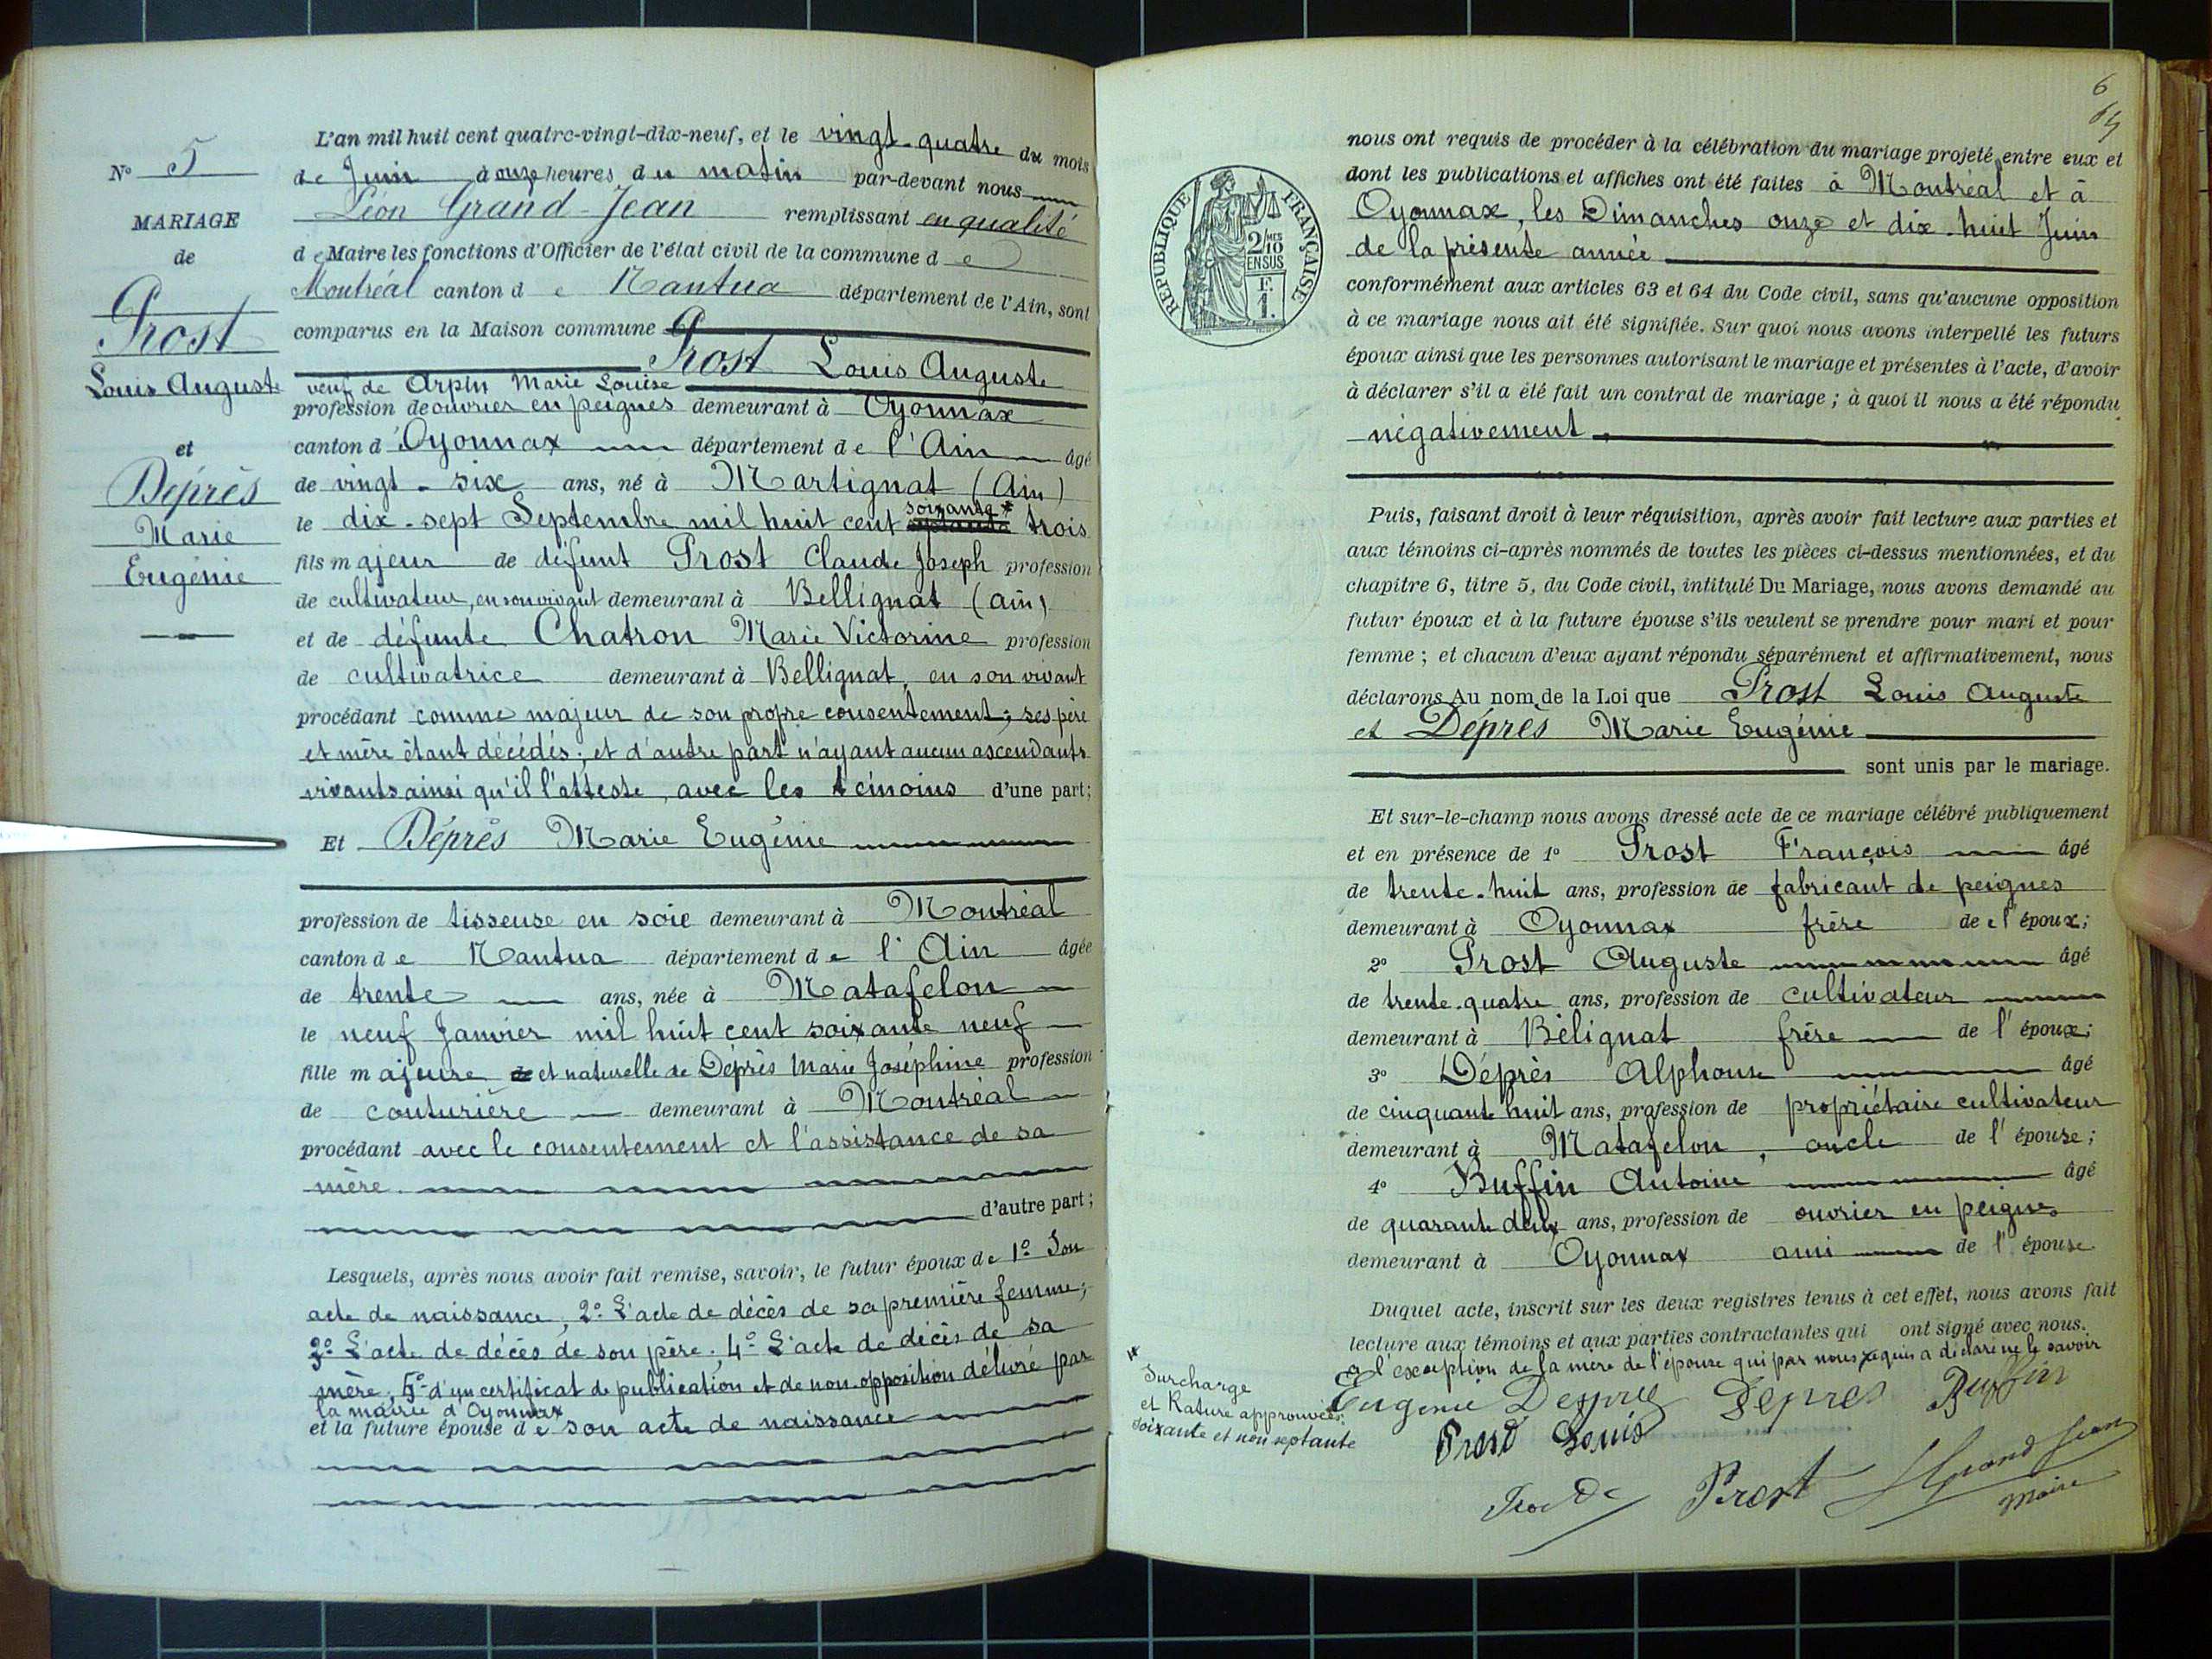 N° 5
MARIAGE
de
Prost
Louis Auguste
et
Déprès
Marie
Eugénie
L'an mil huit cent quatre-vingt-dix-neuf, et le vingt-quatre du mois
de Juin à onze heures du matin par-devant nous
Léon Grand-Jean remplissant en qualité
de Maire les fonctions d'Officier de l'état civil de la commune de
Montréal canton de Nantua département de l'Ain, sont
comparus en la Maison commune
Prost Louis Auguste
veuf de Arpin Marie Louise
profession de ouvrier en peignes demeurant à Oyonnax
canton d'Oyonnax département de l'Ain âgé
de vingt-six ans, né à Martignat (Ain)
le dix-sept Septembre mil huit cent septante soixante * trois
fils majeur de défunt Prost Claude Joseph profession
de cultivateur, en son vivant demeurant à Bellignat (ain)
et de défunte Chatron Marie Victorine profession
de cultivatrice demeurant à Bellignat, en son vivant
procédant comme majeur de son propre consentement; ses père
et mère étant décédés; et d'autre part n'ayant aucun ascendants
vivants ainsi qu'il l'atteste, avec les témoins d'une part;
Et Déprès Marie Eugénie
profession de tisseuse en soie demeurant à Montréal
canton de Nantua département de l'Ain âgée
de trente ans, née à Matafelon
le neuf Janvier mil huit cent soixante neuf
fille majeure de et naturelle de Déprès Marie Joséphine profession
de couturière demeurant à Montréal
procédant avec le consentement et l'assistance de sa
mère.
d'autre part;
Lesquels, après nous avoir fait remise, savoir, le futur époux de 1° Son
acte de naissance, 2° L'acte de décès de sa première femme;
3° L'acte de décès de son père. 4° L'acte de décès de sa
mère; 5° d'un certificat de publication et de non opposition délivré par
la mairie d'Oyonnax
et la future épouse de son acte de naissance
6
REPUBLIQUE FRANÇAISE
2/10MES
EN SUS
F.
1.
nous ont requis de procéder à la célébration du mariage projeté entre eux et
dont les publications et affiches ont été faites à Montréal et à
Oyonnax, les Dimanches onze et dix-huit Juin
de la présente année
conformément aux articles 63 et 64 du Code civil, sans qu'aucune opposition
à ce mariage nous ait été signifiée. Sur quoi nous avons interpellé les futurs
époux ainsi que les personnes autorisant le mariage et présentes à l'acte, d'avoir
à déclarer s'il a été fait un contrat de mariage; à quoi il nous a été répondu
négativement.
Puis, faisant droit à leur réquisition, après avoir fait lecture aux parties et
aux témoins ci-après nommés de toutes les pièces ci-dessus mentionnées, et du
chapitre 6, titre 5, du Code civil, intitulé Du Mariage, nous avons demandé au
futur époux et à la future épouse s'ils veulent se prendre pour mari et pour
femme; et chacun d'eux ayant répondu séparément et affirmativement, nous
déclarons Au nom de la Loi que Prost Louis Auguste
et Déprès Marie Eugénie
sont unis par le mariage.
Et sur-le-champ nous avons dressé acte de ce mariage célébré publiquement
et en présence de 1° Prost François âgé
de trente-huit ans, profession de fabricant de peignes
demeurant à Oyonnax frère de l'époux;
2° Prost Auguste âgé
de trente-quatre ans, profession de cultivateur
demeurant à Bélignat frère de l'époux;
3° Déprès Alphonse âgé
de cinquante huit ans, profession de propriétaire cultivateur
demeurant à Matafelon, oncle de l'épouse;
4° Buffin Antoine âgé
de quarante deux ans, profession de ouvrier en peignes
demeurant à Oyonnax ami de l'épouse.
Duquel acte, inscrit sur les deux registres tenus à cet effet, nous avons fait
lecture aux témoins et aux parties contractantes qui ont signé avec nous.
à l'exception de la mère de l'épouse qui par nous requis a déclaré ne le savoir
*
Surcharge
et Rature approuvées.
soixante et non septante
Eugenie Depres Depres Buffin
Prost Louis
Prost LGrand Jean
Maire